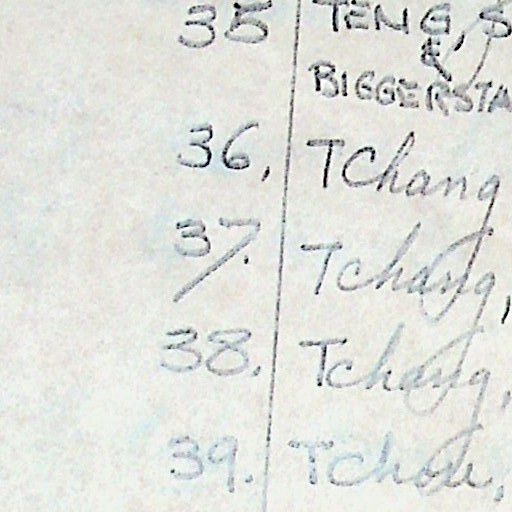 35 TENG, S
BIGGERSTA
36, Tchang
37. Tchang,
38. Tchang,
39. Tchou,